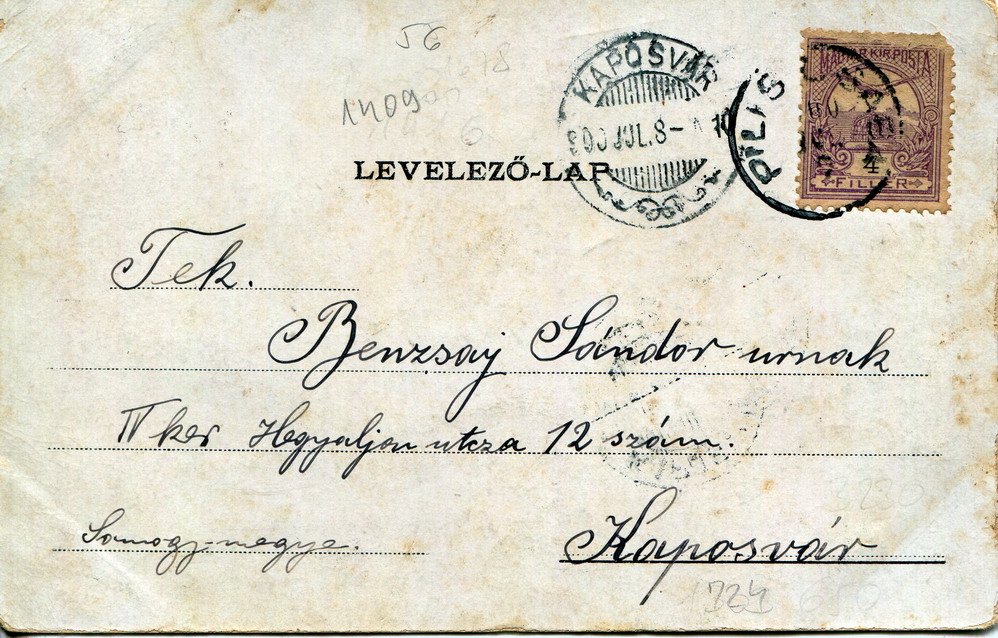 56
1409
KAPOSVÁR
900 JUL. 8
PILIS
MAGYAR KIR. POSTA
4
FILLÉR
LEVELEZŐ-LAP
Tek.
Benzsay Sándor urnak
IV ker Hegyaljou utcza 12 szám.
Somogy-megye.
Kaposvár
724